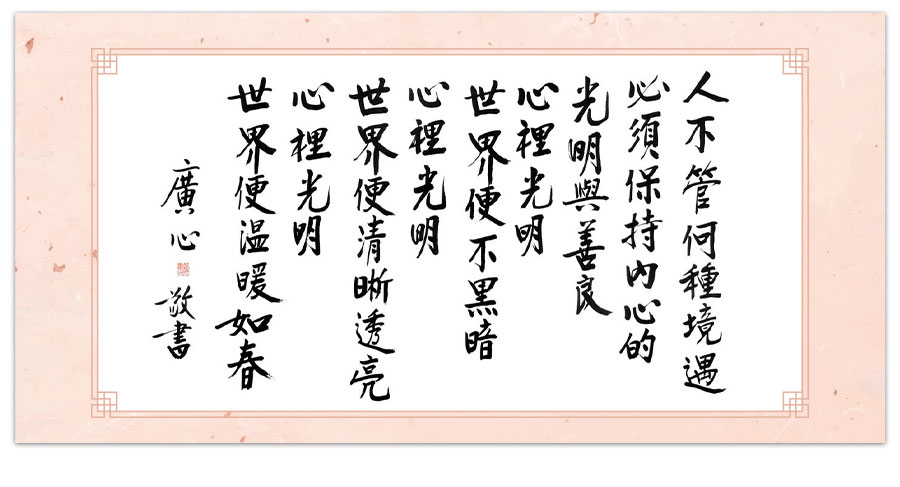 人不管何種境遇
必須保持內心的
光明與善良
心裡光明
世界便不黑暗
心裡光明
世界便清晰透亮
心裡光明
世界便溫暖如春
廣心
敬書